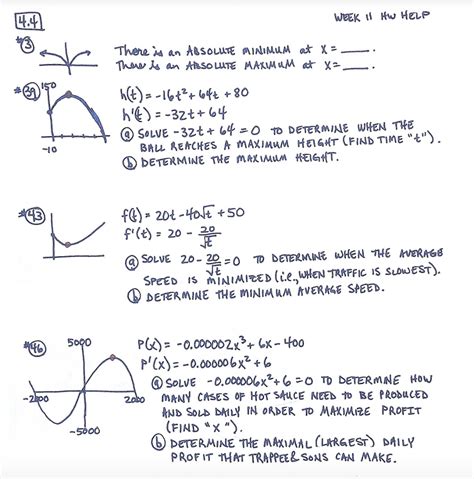 4.4
WEEK 11 HW HELP
#3
There is an ABSOLUTE MINIMUM at x = ____.
There is an ABSOLUTE MAXIMUM at x = ____.
#39
150
-10
h(t) = -16t² + 64t + 80
h'(t) = -32t + 64
(a) SOLVE -32t + 64 = 0 TO DETERMINE WHEN THE
BALL REACHES A MAXIMUM HEIGHT (FIND TIME "t").
(b) DETERMINE THE MAXIMUM HEIGHT.
#43
f(t) = 20t - 40√t + 50
f'(t) = 20 - 20/√t
(a) SOLVE 20 - 20/√t = 0 TO DETERMINE WHEN THE AVERAGE
SPEED IS MINIMIZED (i.e., WHEN TRAFFIC IS SLOWEST).
(b) DETERMINE THE MINIMUM AVERAGE SPEED.
#46
5000
-2000
2000
-5000
P(x) = -0.000002x³ + 6x - 400
P'(x) = -0.000006x² + 6
(a) SOLVE -0.000006x² + 6 = 0 TO DETERMINE HOW
MANY CASES OF HOT SAUCE NEED TO BE PRODUCED
AND SOLD DAILY IN ORDER TO MAXIMIZE PROFIT
(FIND "x").
(b) DETERMINE THE MAXIMAL (LARGEST) DAILY
PROFIT THAT TRAPPEE & SONS CAN MAKE.